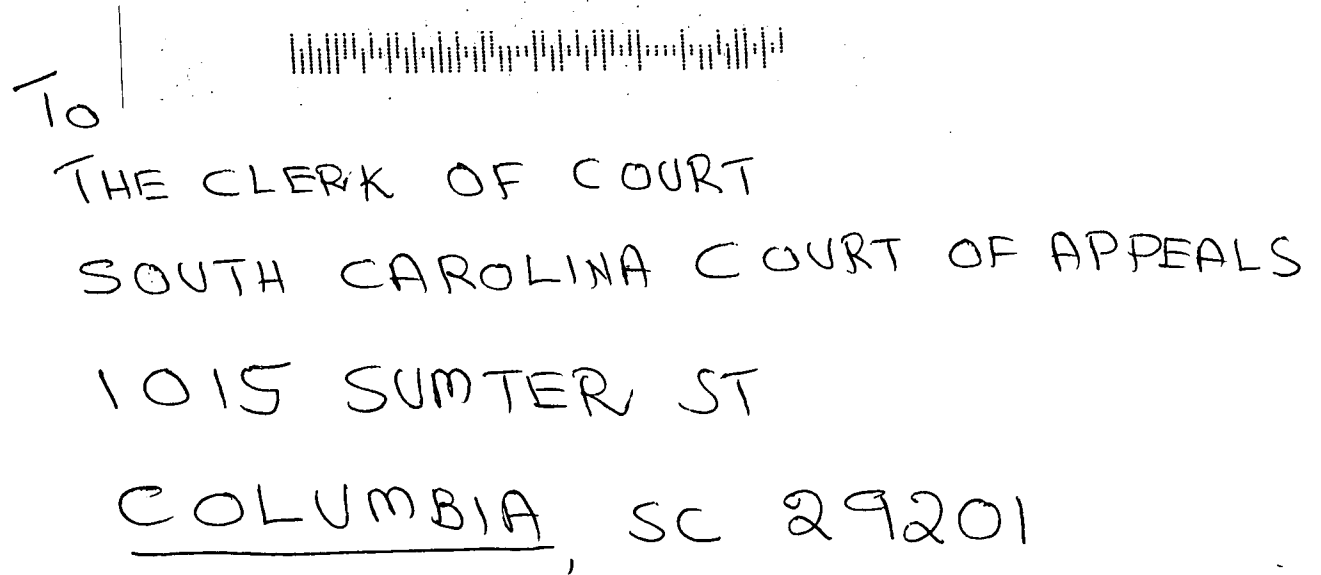 To
THE CLERK OF COURT
SOUTH CAROLINA COURT OF APPEALS
1015 SUMTER ST
COLUMBIA, SC 29201